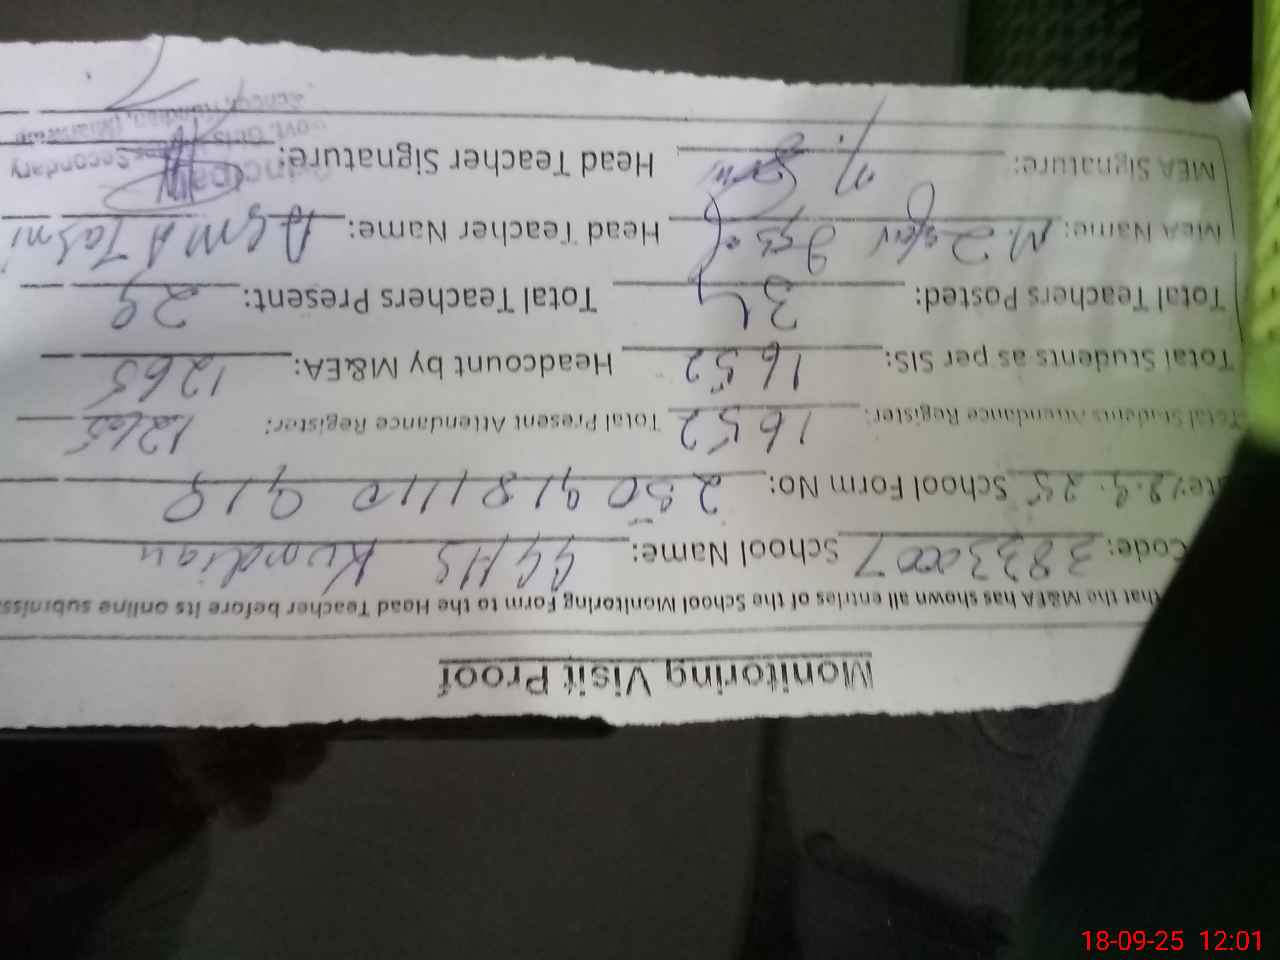 Monitoring Visit Proof
that the M&EA has shown all entries of the School Monitoring Form to the Head Teacher before its online submiss
Code: 38330007 School Name: GGHS Kundian
te: 18.9.25 School Form No: 2509181110 919
Total Students Attendance Register: 1652 Total Present Attendance Register: 1265
Total Students as per SIS: 1652 Headcount by M&EA: 1265
Total Teachers Posted: 34 Total Teachers Present: 29
MEA Name: Head Teacher Name: ASMA Tasni
MEA Signature: Head Teacher Signature:
Principal
Secondary
Kundian,
18-09-25 12:01